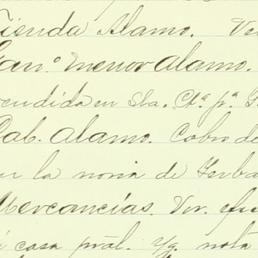 Tienda Alamo. Ve
Gan.º menor Alamo.
endida en Sta. Ctª pª
Lab. Alamo. Cobro de
la noria de
Mercancías. Vr.
casa pral. Yg. nota